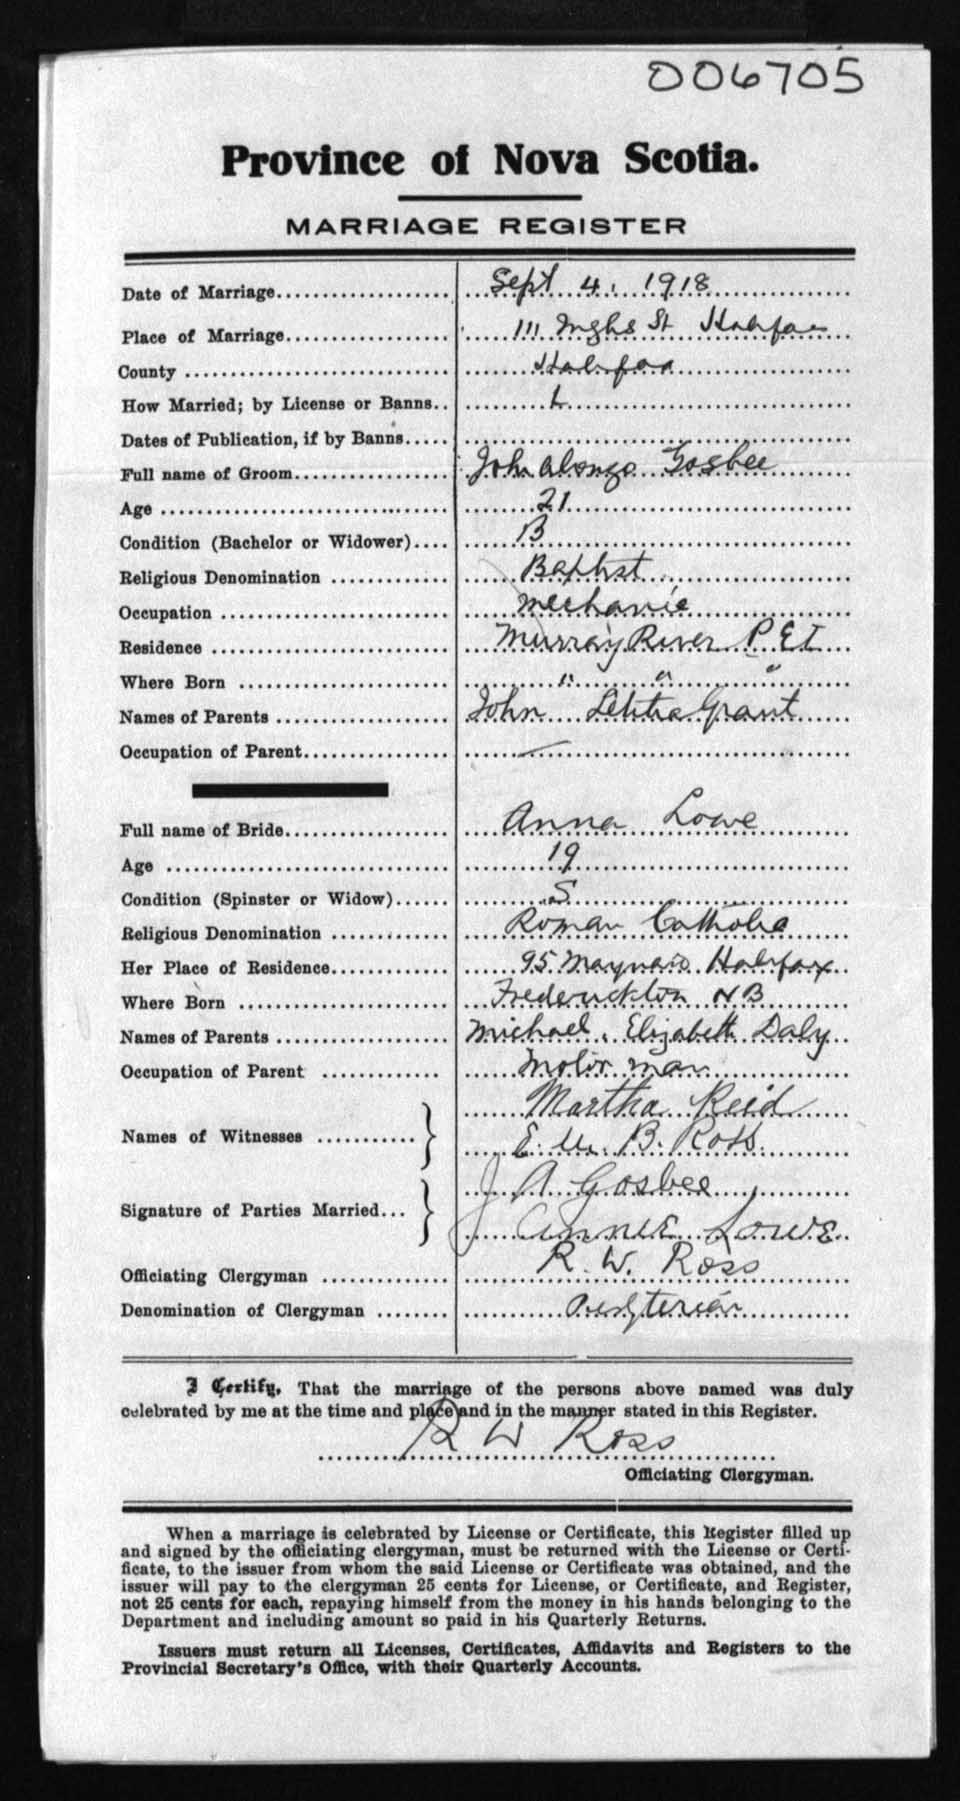 006705
Province of Nova Scotia.
MARRIAGE REGISTER
Date of Marriage Sept 4, 1918
Place of Marriage 111 Inglis St Halifax
County Halifax
How Married; by License or Banns L
Dates of Publication, if by Banns
Full name of Groom John Alonzo Gosbee
Age 21
Condition (Bachelor or Widower) B
Religious Denomination Baptist
Occupation Mechanic
Residence Murray River P.E.I
Where Born " " "
Names of Parents John Letitia Grant
Occupation of Parent —
Full name of Bride Anna Lowe
Age 19
Condition (Spinster or Widow) S
Religious Denomination Roman Catholic
Her Place of Residence 95 Maynard Halifax
Where Born Frederickton NB
Names of Parents Michael, Elizabeth Daly
Occupation of Parent Motor man
Names of Witnesses Martha Reid
E. M. B. Ross
Signature of Parties Married... J A Gosbee
Annie Lowe
Officiating Clergyman R. W. Ross
Denomination of Clergyman Presbyterian
I Certify, That the marriage of the persons above named was duly
celebrated by me at the time and place and in the manner stated in this Register.
R W Ross
Officiating Clergyman.
When a marriage is celebrated by License or Certificate, this Register filled up
and signed by the officiating clergyman, must be returned with the License or Certi-
ficate, to the issuer from whom the said License or Certificate was obtained, and the
issuer will pay to the clergyman 25 cents for License, or Certificate, and Register,
not 25 cents for each, repaying himself from the money in his hands belonging to the
Department and including amount so paid in his Quarterly Returns.
Issuers must return all Licenses, Certificates, Affidavits and Registers to the
Provincial Secretary's Office, with their Quarterly Accounts.